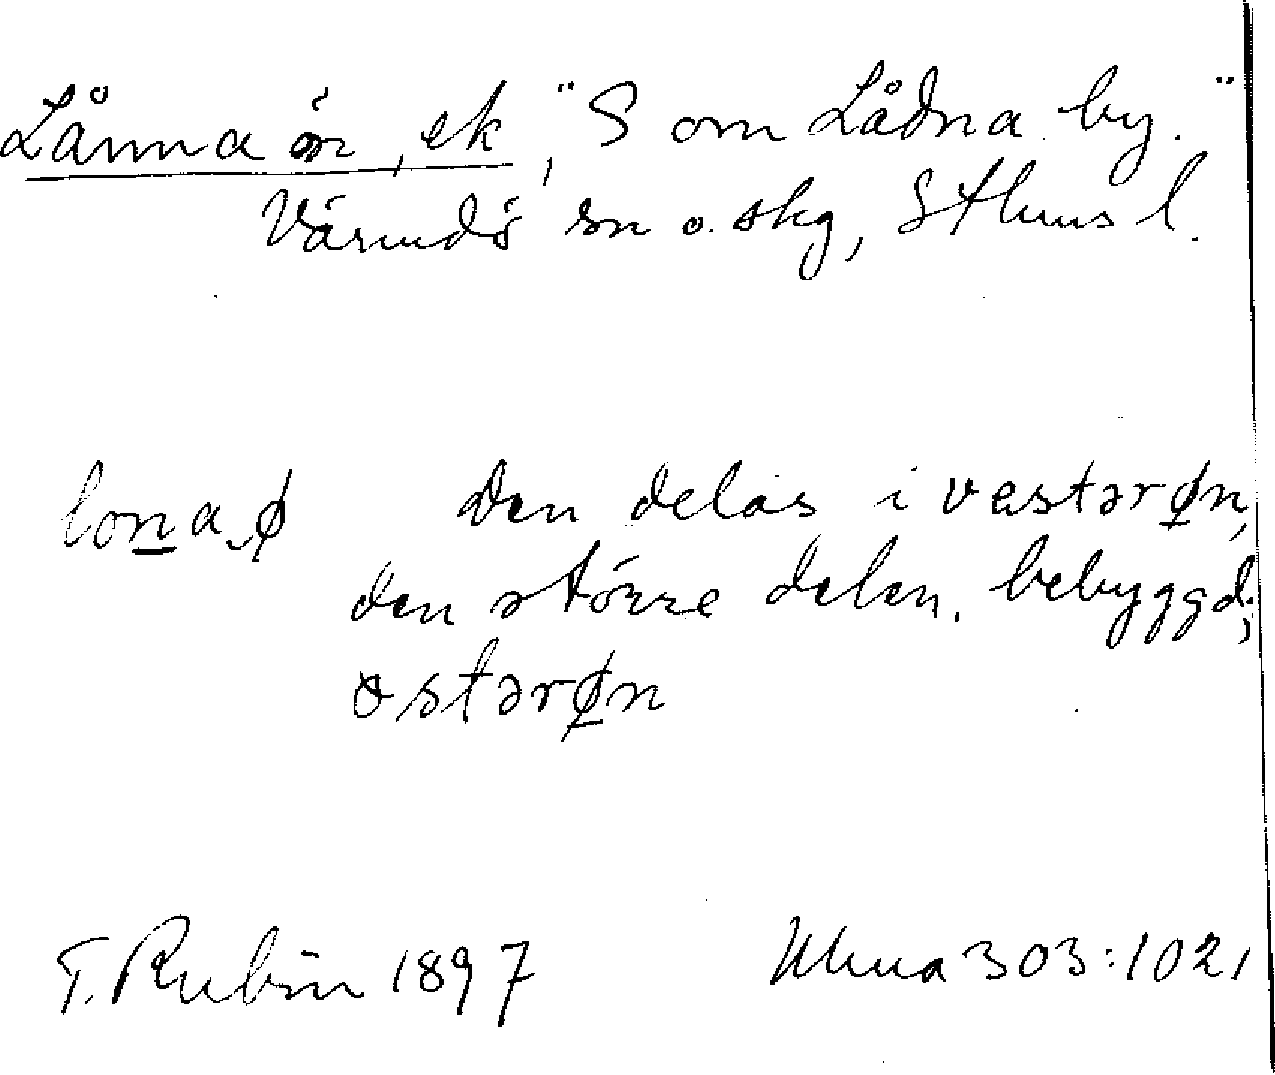 Lånnaön, ek, "S om Lådna by."
Värmdö sn o. skg, Sthms l.
lona ø den delas i vestərøn,
den större delen, bebyggd;
ostərøn
T. Rubin 1897 Uluua 303:1021